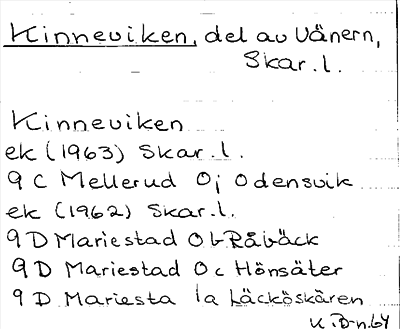 Kinneviken, del av Vänern,
Skar.l.
Kinneviken
ek (1963) Skar.l.
9 C Mellerud 0j Odensvik
ek (1962) Skar.l.
9 D Mariestad 0b Råbäck
9 D Mariestad 0c Hönsäter
9 D Mariesta 1a Läcköskären